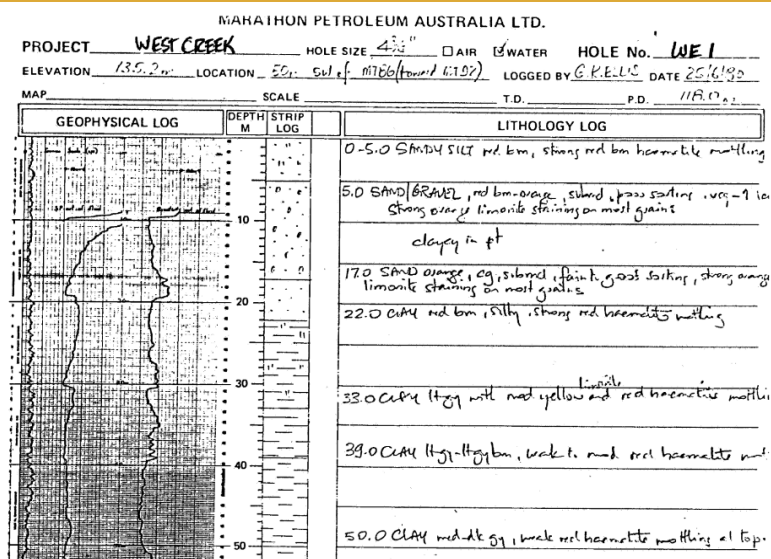 MARATHON PETROLEUM AUSTRALIA LTD.
PROJECT WEST CREEK HOLE SIZE 4¾" AIR WATER HOLE No. WE 1
ELEVATION 135.2m LOCATION 50m SW of MT86 LOGGED BY G.K.ELLIS DATE 25/6/90
MAP SCALE T.D. P.D. 118.0
GEOPHYSICAL LOG DEPTH M STRIP LOG LITHOLOGY LOG
0-5.0 SANDY SILT red brn, strong red brn haematite mottling
5.0 SAND/GRAVEL, red brn-orange, subrnd, poor sorting
Strong orange limonite staining on most grains
clayey in pt
10
17.0 SAND orange, cg, subrnd, good sorting, strong orange
limonite staining on most grains
20
22.0 CLAY red brn, silty, strong red haematite mottling
30
limonite
33.0 CLAY ltgy with mod yellow and red haematite
39.0 CLAY ltgy-ltgybrn, weak to mod red haematite
40
50.0 CLAY med-dk gy, weak red haematite mottling at top.
50